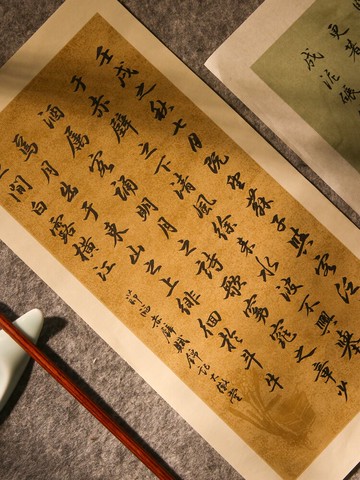 壬戌之秋七月既望蘇子與客泛
于赤壁之下清風徐來水波不興舉
酒屬客誦明月之詩歌窈窕之章少
焉月出于東山之上徘徊於斗牛
間白露橫江
更著
成泥碾